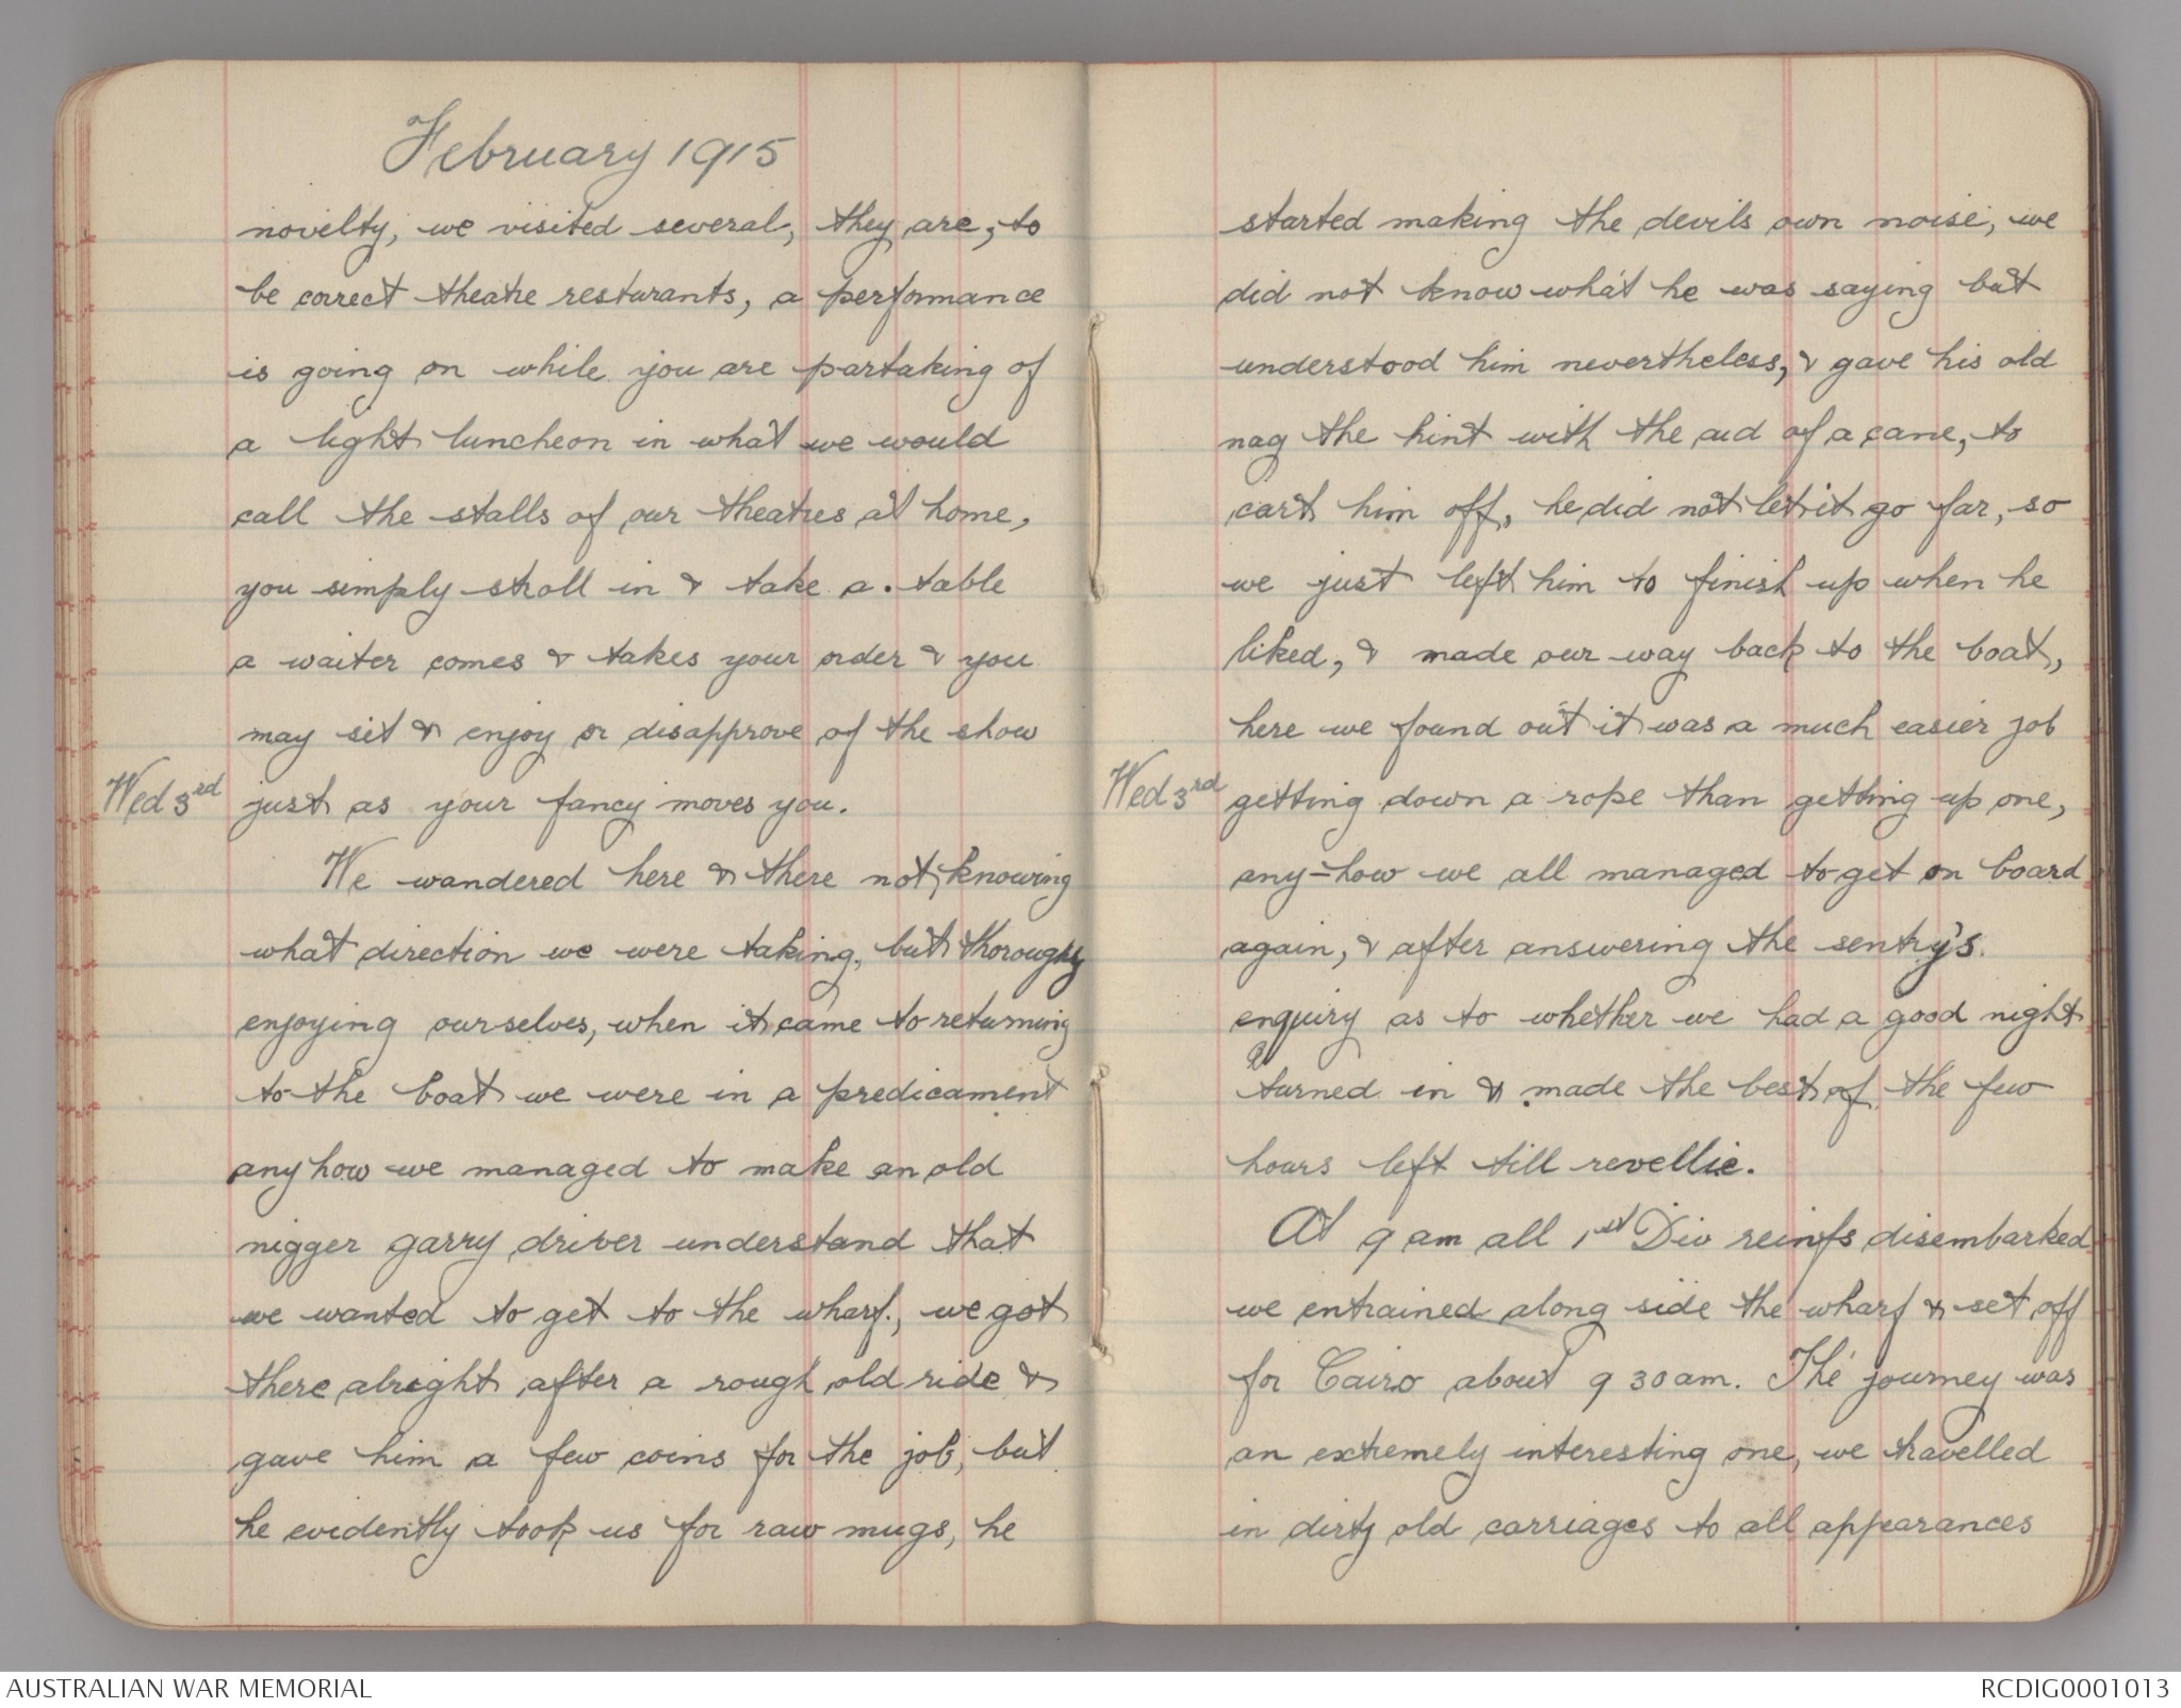 February 1915
novelty, we visited several, they are, to
be correct theatre resturants, a performance
is going on while you are partaking of
a light luncheon in what we would
call the stalls of our theatres at home,
you simply stroll in & take a. table
a waiter comes & takes your order & you
may sit & enjoy or disapprove of the show
Wed 3rd just as your fancy moves you.
We wandered here & there not knowing
what direction we were taking, but thoroughy
enjoying ourselves, when it came to returning
to the boat we were in a predicament
anyhow we managed to make an old
nigger garry driver understand that
we wanted to get to the wharf., we got
there alright after a rough old ride &
gave him a few coins for the job, but
he evidently took us for raw mugs, he
started making the devils own noise, we
did not know what he was saying but
understood him nevertheless, & gave his old
nag the hint with the aid of a cane, to
cart him off, he did not let it go far, so
we just left him to finish up when he
liked, & made our way back to the boat,
here we found out it was a much easier job
Wed 3rd getting down a rope than getting up one,
any-how we all managed to get on board
again, & after answering the sentry's.
enquiry as to whether we had a good night
turned in & made the best of the few
hours left till revellie.
At 9 am all 1st Div reinfs disembarked
we entrained along side the wharf & set off
for Cairo about 9 30 am. The journey was
an extremely interesting one, we travelled
in dirty old carriages to all appearances
AUSTRALIAN WAR MEMORIAL
RCDIG0001013